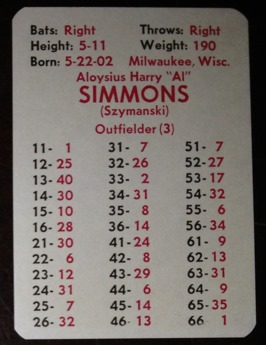 Bats: Right Throws: Right
Height: 5-11 Weight: 190
Born: 5-22-02 Milwaukee, Wisc.
Aloysius Harry "Al"
SIMMONS
(Szymanski)
Outfielder (3)
11- 1 31- 7 51- 7
12- 25 32- 26 52- 27
13- 40 33- 2 53- 17
14- 30 34- 31 54- 32
15- 10 35- 8 55- 6
16- 28 36- 14 56- 34
21- 30 41- 24 61- 9
22- 6 42- 8 62- 13
23- 12 43- 29 63- 31
24- 31 44- 6 64- 9
25- 7 45- 14 65- 35
26- 32 46- 13 66- 1